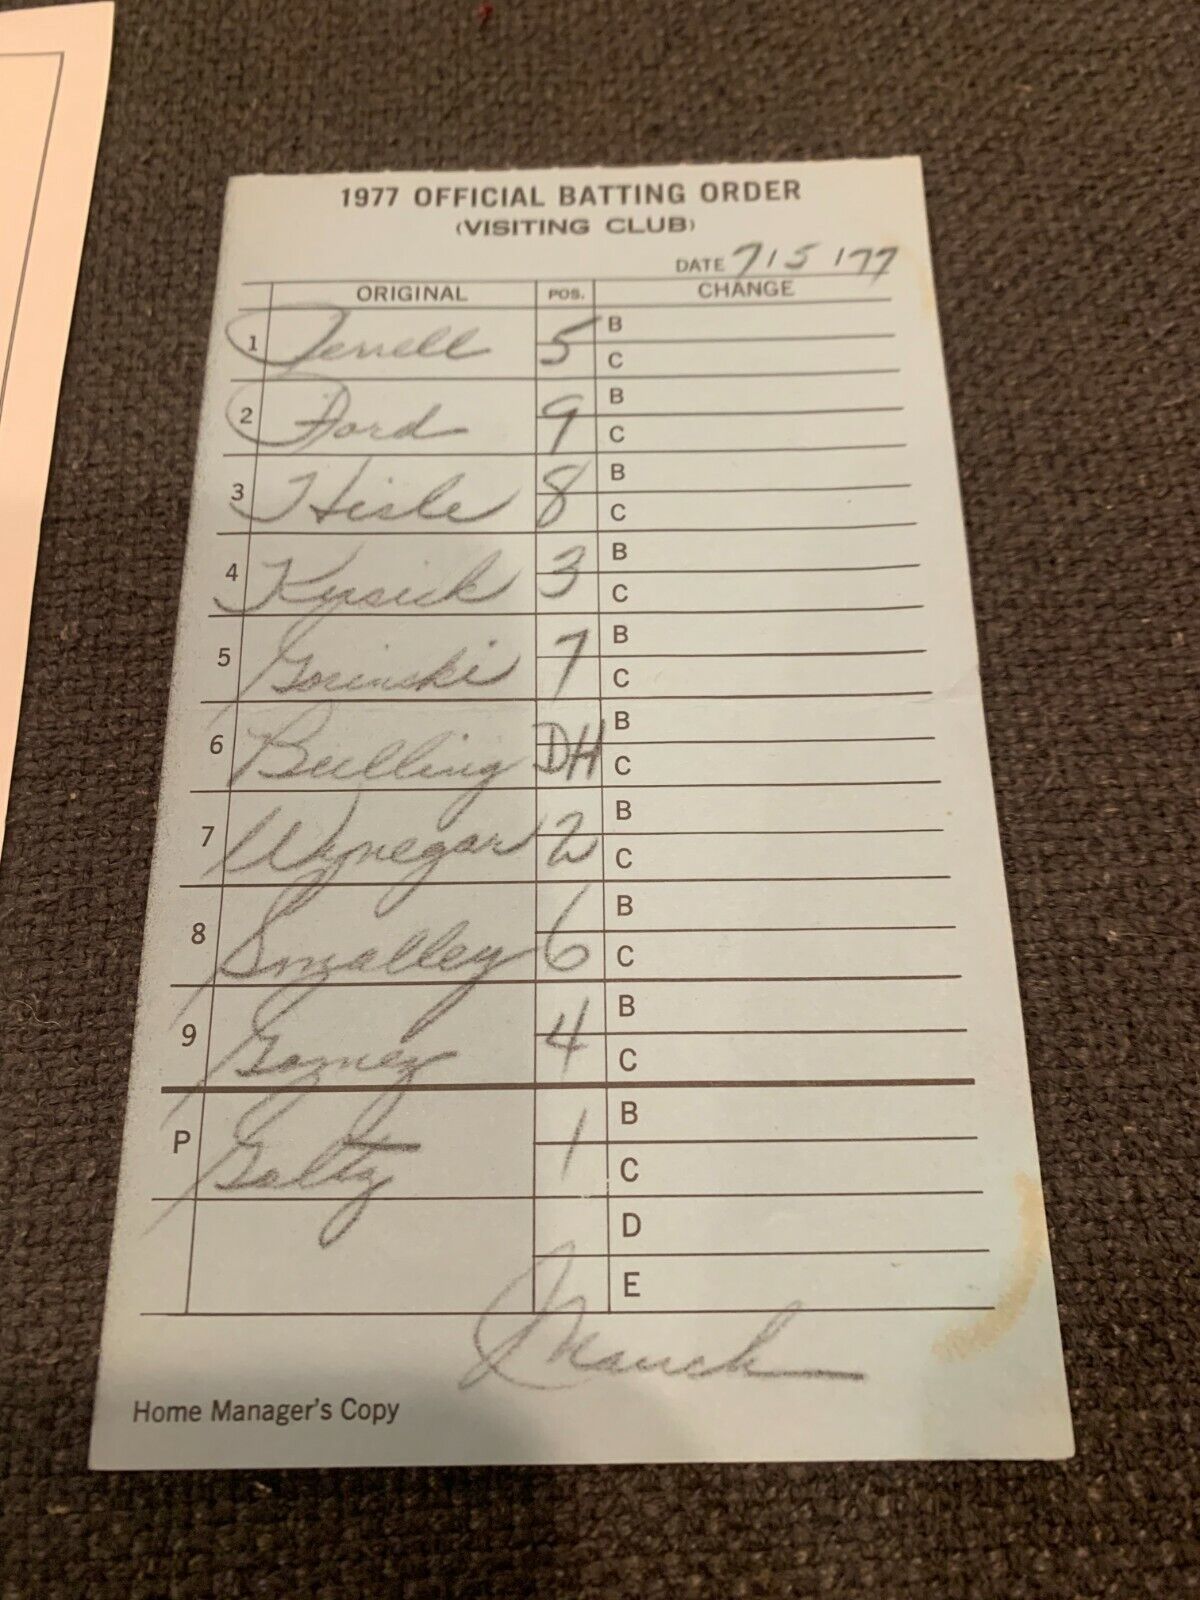 1977 OFFICIAL BATTING ORDER
(VISITING CLUB)
DATE 7/5/77
ORIGINAL POS. CHANGE
1 Terrell 5 B
C
2 Ford 9 B
C
3 Hisle 8 B
C
4 Kusick 3 B
C
5 Gorinski 7 B
C
6 Bulling DH B
C
7 Wynegar 2 B
C
8 Smalley 6 B
C
9 Gomez 4 B
C
P Goltz 1 B
C
D
E
Mauch
Home Manager's Copy